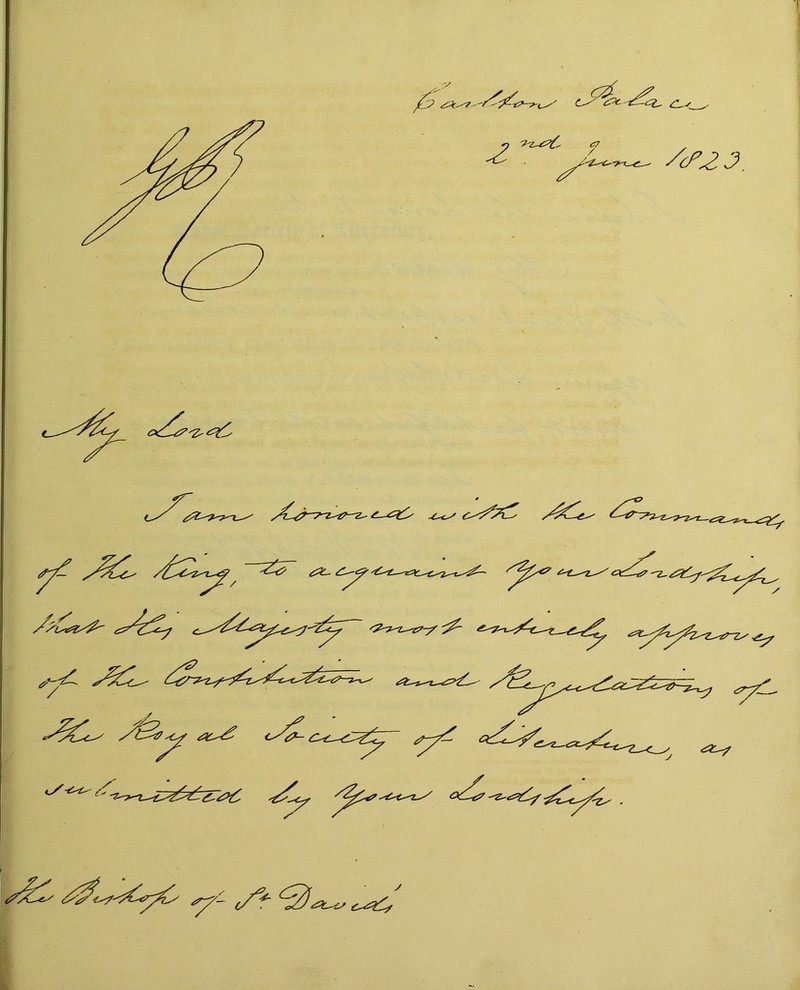 Carlton Palace
2nd June 1823.
GR
My Lord
I am honored with the Commands
of The King, to acquaint your Lordship,
that His Majesty most entirely approves
of The Constitution and Regulations of
The Royal Society of Literature, as
submitted by your Lordship.
The Bishop of St David's